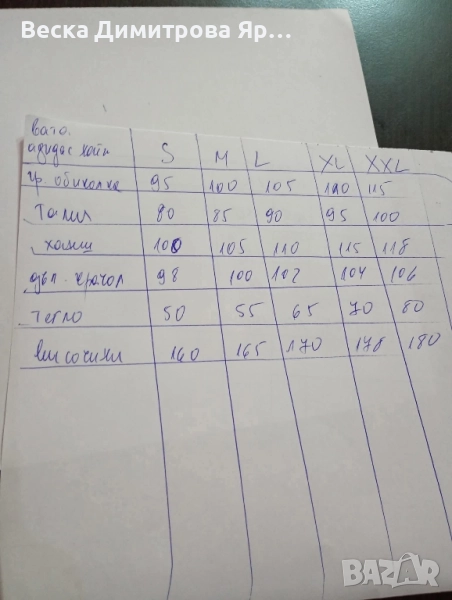 Веска Димитрова Яр...
вата.
адидас хайн S M L XL XXL
гр. обиколка 95 100 105 110 115
Талия 80 85 90 95 100
ханш 100 105 110 115 118
дъл. крачол 98 100 102 104 106
тегло 50 55 65 70 80
височини 160 165 170 178 180
BAZAR